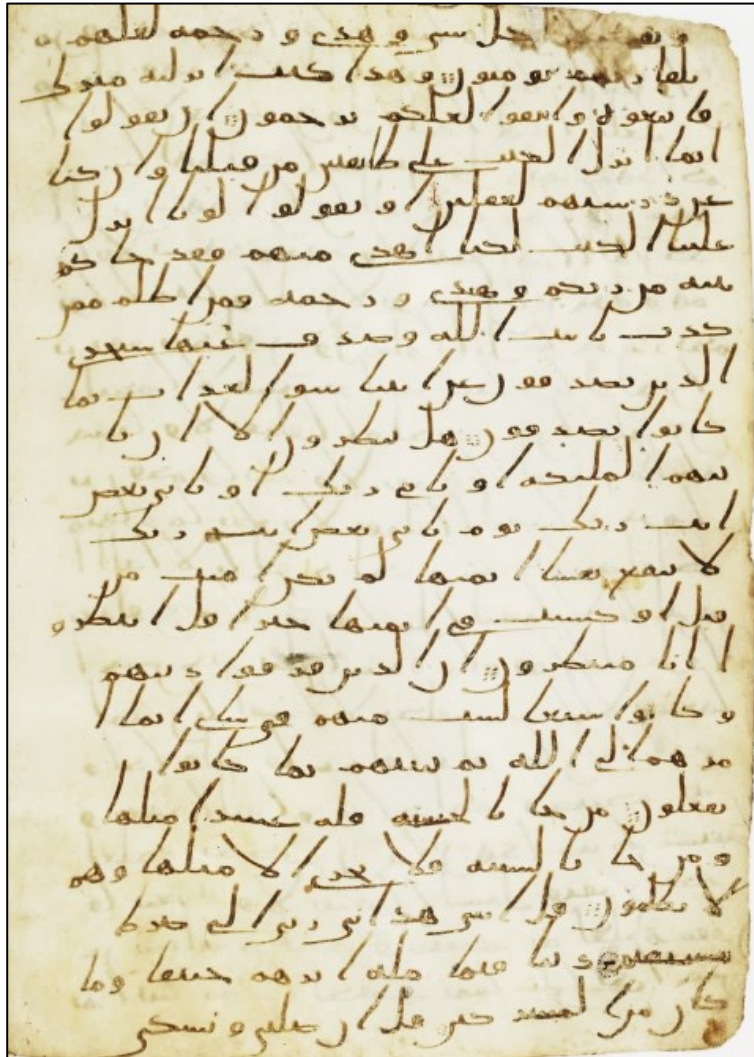 وتفصيلا لكل شى وهدى ورحمة لعلهم ب
لقا ربهم يومنون وهذا كتب انزلنه مبرك
فاتبعوه واتقوا لعلكم ترحمون ان تقولوا
انما انزل الكتب على طايفتين من قبلنا وان كنا
عن درستهم لغفلين او تقولوا لو انا انزل
علينا الكتب لكنا اهدى منهم فقد جاكم
بينة من ربكم وهدى ورحمة فمن اظلم ممن
كذب بايت الله وصدف عنها سنجزى
الذين يصدفون عن ايتنا سوا لعذاب بما
كانوا يصدفون هل ينظرون الا ان تا
تيهم الملىكة او ياتى ربك او ياتى بعض
ايت ربك يوم ياتى بعض ايت ربك
لا ينفع نفسا ايمنها لم تكن امنت من
قبل او كسبت فى ايمنها خيرا قل انتظرو
ا انا منتظرون ان الذين فرقوا دينهم
وكانوا شيعا لست منهم فى شى انما ا
مرهم الى الله ثم ينبيهم بما كانوا
يفعلون من جا بالحسنة فله عشر امثلها
ومن جا بالسيية فلا يجزى الا مثلها وهم
لا يظلمون قل اننى هدانى ربى الى صرط
مستقيم دينا قيما ملة ابرهم حنيفا وما
كان من المشركين قل ان صلتى ونسكى